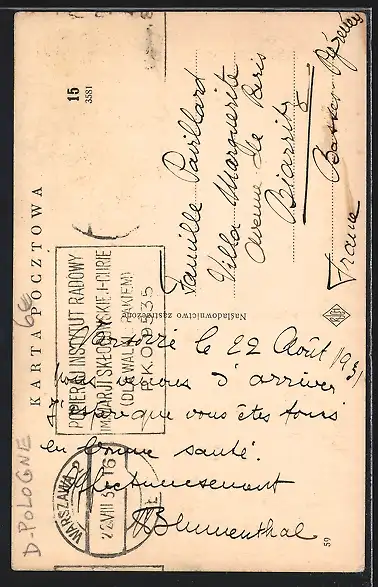 KARTA POCZTOWA
15
3581
Famille Pavillard
Villa Marguerite
Avenue de Paris
Biarritz
Basses-Pyrénées
France
Naśladownictwo zastrzeżone
POPIERAJ INSTYTUT RADOWY
IM. MARJI SKŁODOWSKIEJ-CURIE
(DO WALKI Z RAKIEM)
P.K.O. 9535
WARSZAWA 2
Varsovie le 22 Août 1931
Nous venons d'arriver
J'espère que vous êtes tous
en bonne santé.
Affectueusement
Blumenthal
59
6€
D-POLOGNE